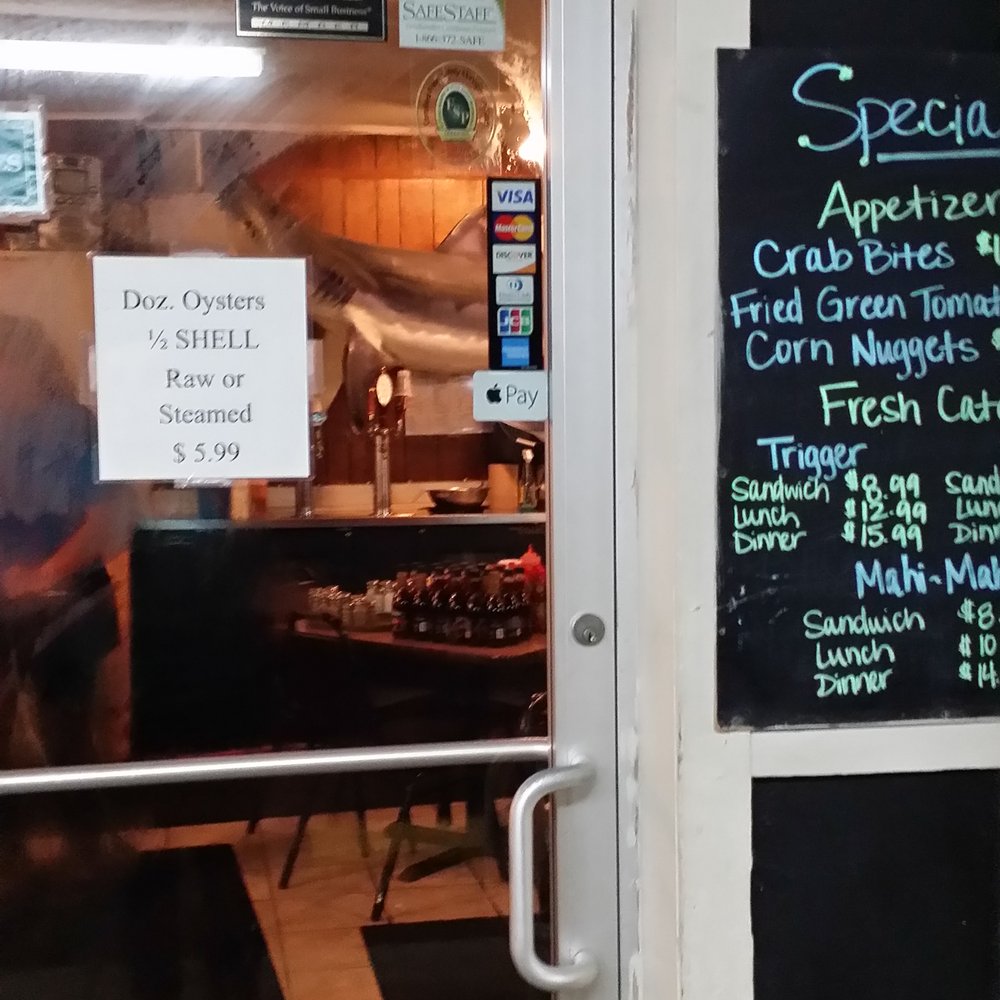 The Voice of Small Business®
MEMBER
SAFESTAFF
1-866-372-SAFE
VISA
MasterCard
DISCOVER
JCB
Pay
Doz. Oysters
½ SHELL
Raw or
Steamed
$ 5.99
Specia
Appetizer
Crab Bites $1
Fried Green Tomat
Corn Nuggets $
Fresh Cat
Trigger
Sandwich $8.99 Sand
Lunch $12.99 Lun
Dinner $15.99 Din
Mahi-Mah
Sandwich $8
Lunch $10
Dinner $14.